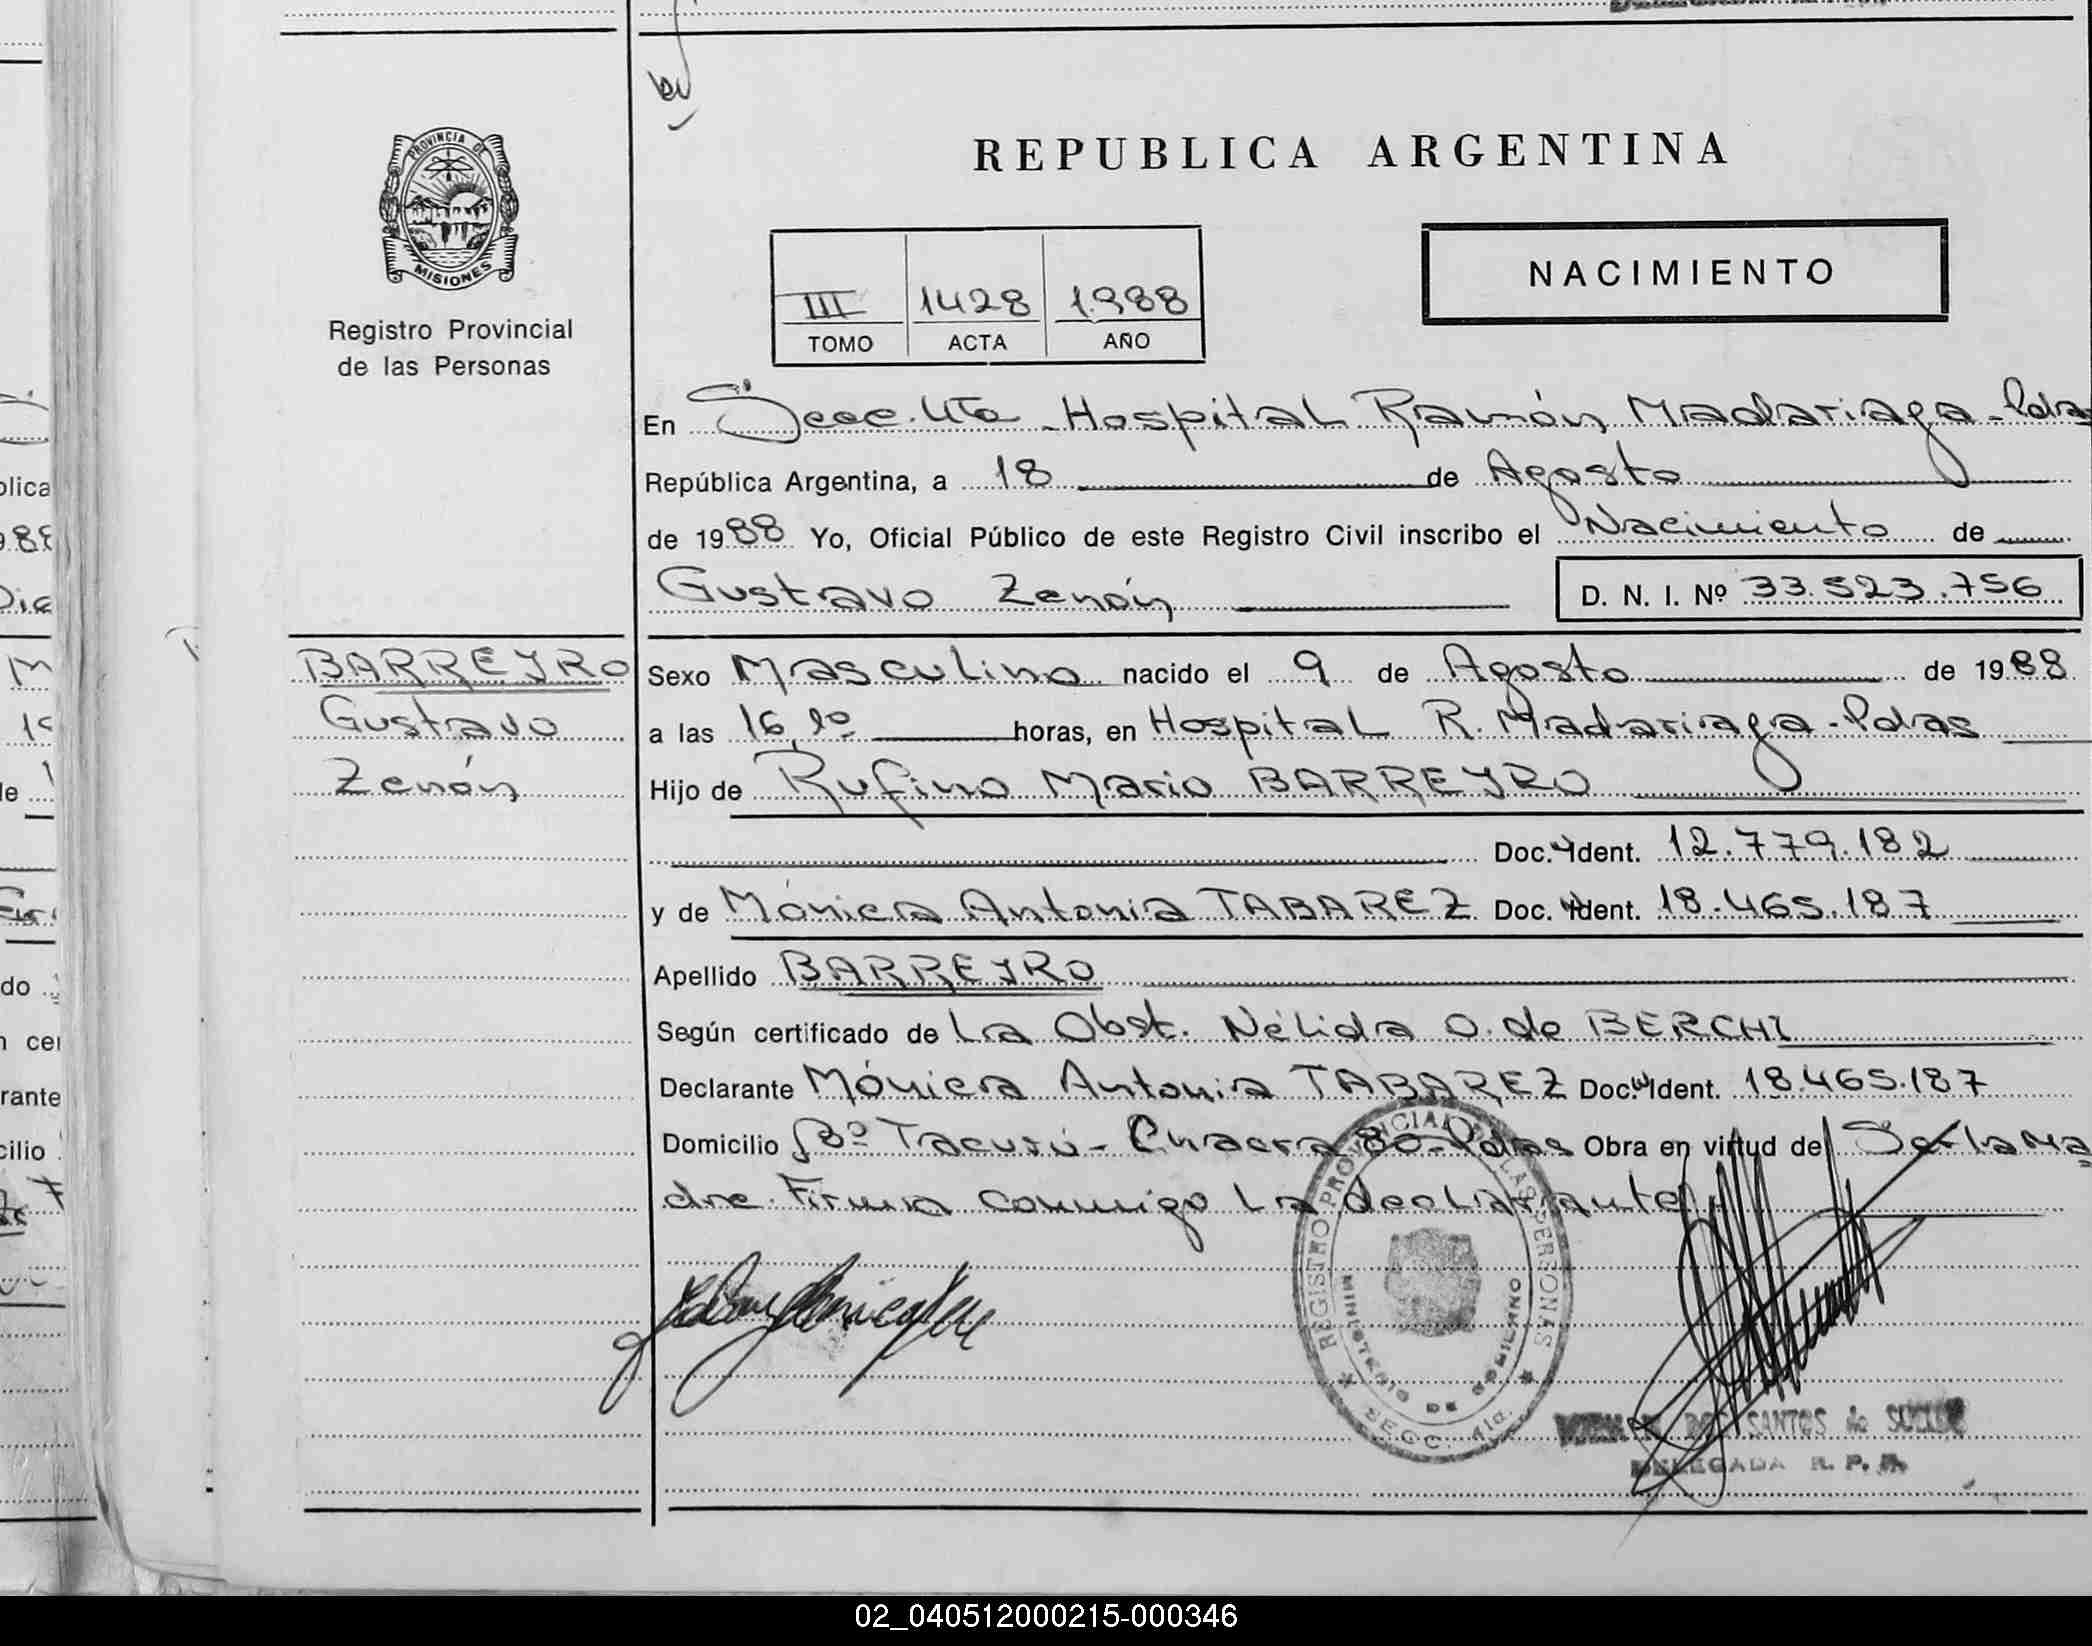 REPUBLICA ARGENTINA
PROVINCIA DE
MISIONES
Registro Provincial
de las Personas
III 1428 1.988
TOMO ACTA AÑO
NACIMIENTO
En Secc. 4ta - Hospital Ramón Madariaga - Pdas
República Argentina, a 18 de Agosto
de 1988 Yo, Oficial Público de este Registro Civil inscribo el Nacimiento de
Gustavo Zenón D. N. I. Nº 33.523.756
BARREYRO
Gustavo
Zenón
Sexo Masculino nacido el 9 de Agosto de 1988
a las 16,10 horas, en Hospital R. Madariaga - Pdas
Hijo de Rufino Mario BARREYRO
Doc. Ident. 12.779.182
y de Mónica Antonia TABAREZ Doc. Ident. 18.465.187
Apellido BARREYRO
Según certificado de La Obst. Nélida O. de BERCHI
Declarante Mónica Antonia TABAREZ Doc. Ident. 18.465.187
Domicilio Bº Tacurú - Chacra 80 - Pdas Obra en virtud de Ser la Ma
dre. Firma conmigo la declarante
REGISTRO PROVINCIAL DE LAS PERSONAS
MINISTERIO DE GOBIERNO
SECC. 4ta.
DOS SANTOS de
DELEGADA R. P. P.
02_040512000215-000346